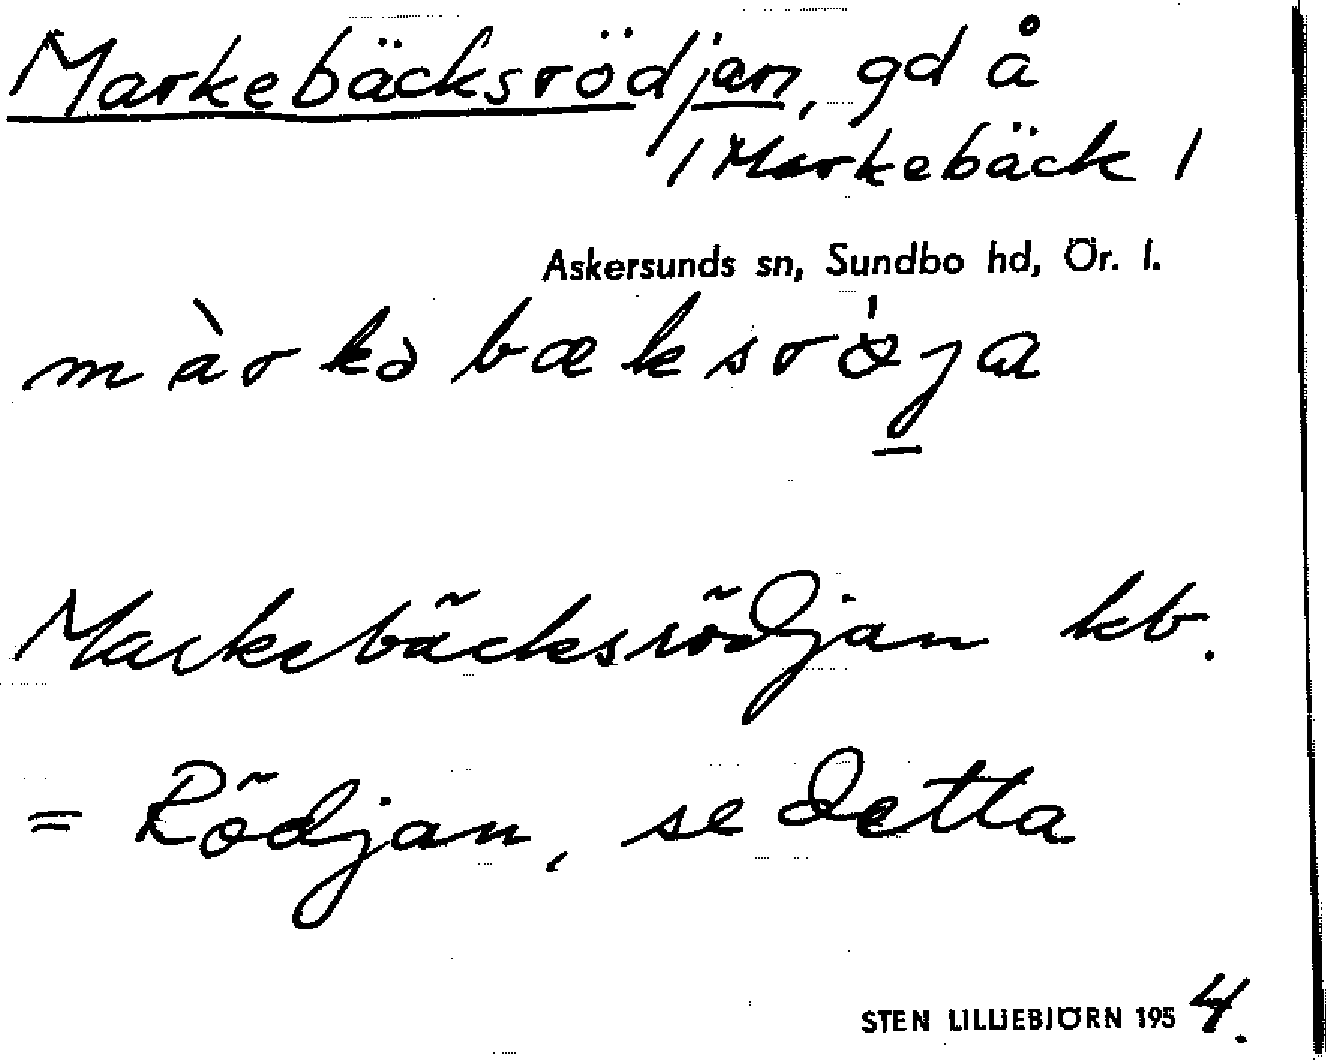 Markebäcksrödjan, gd å
/ Markebäck /
Askersunds sn, Sundbo hd, Ör. l.
màrkəbæksrö̀ja
Markebäcksrödjan kb.
= Rödjan, se detta
STEN LILLIEBJÖRN 1954.